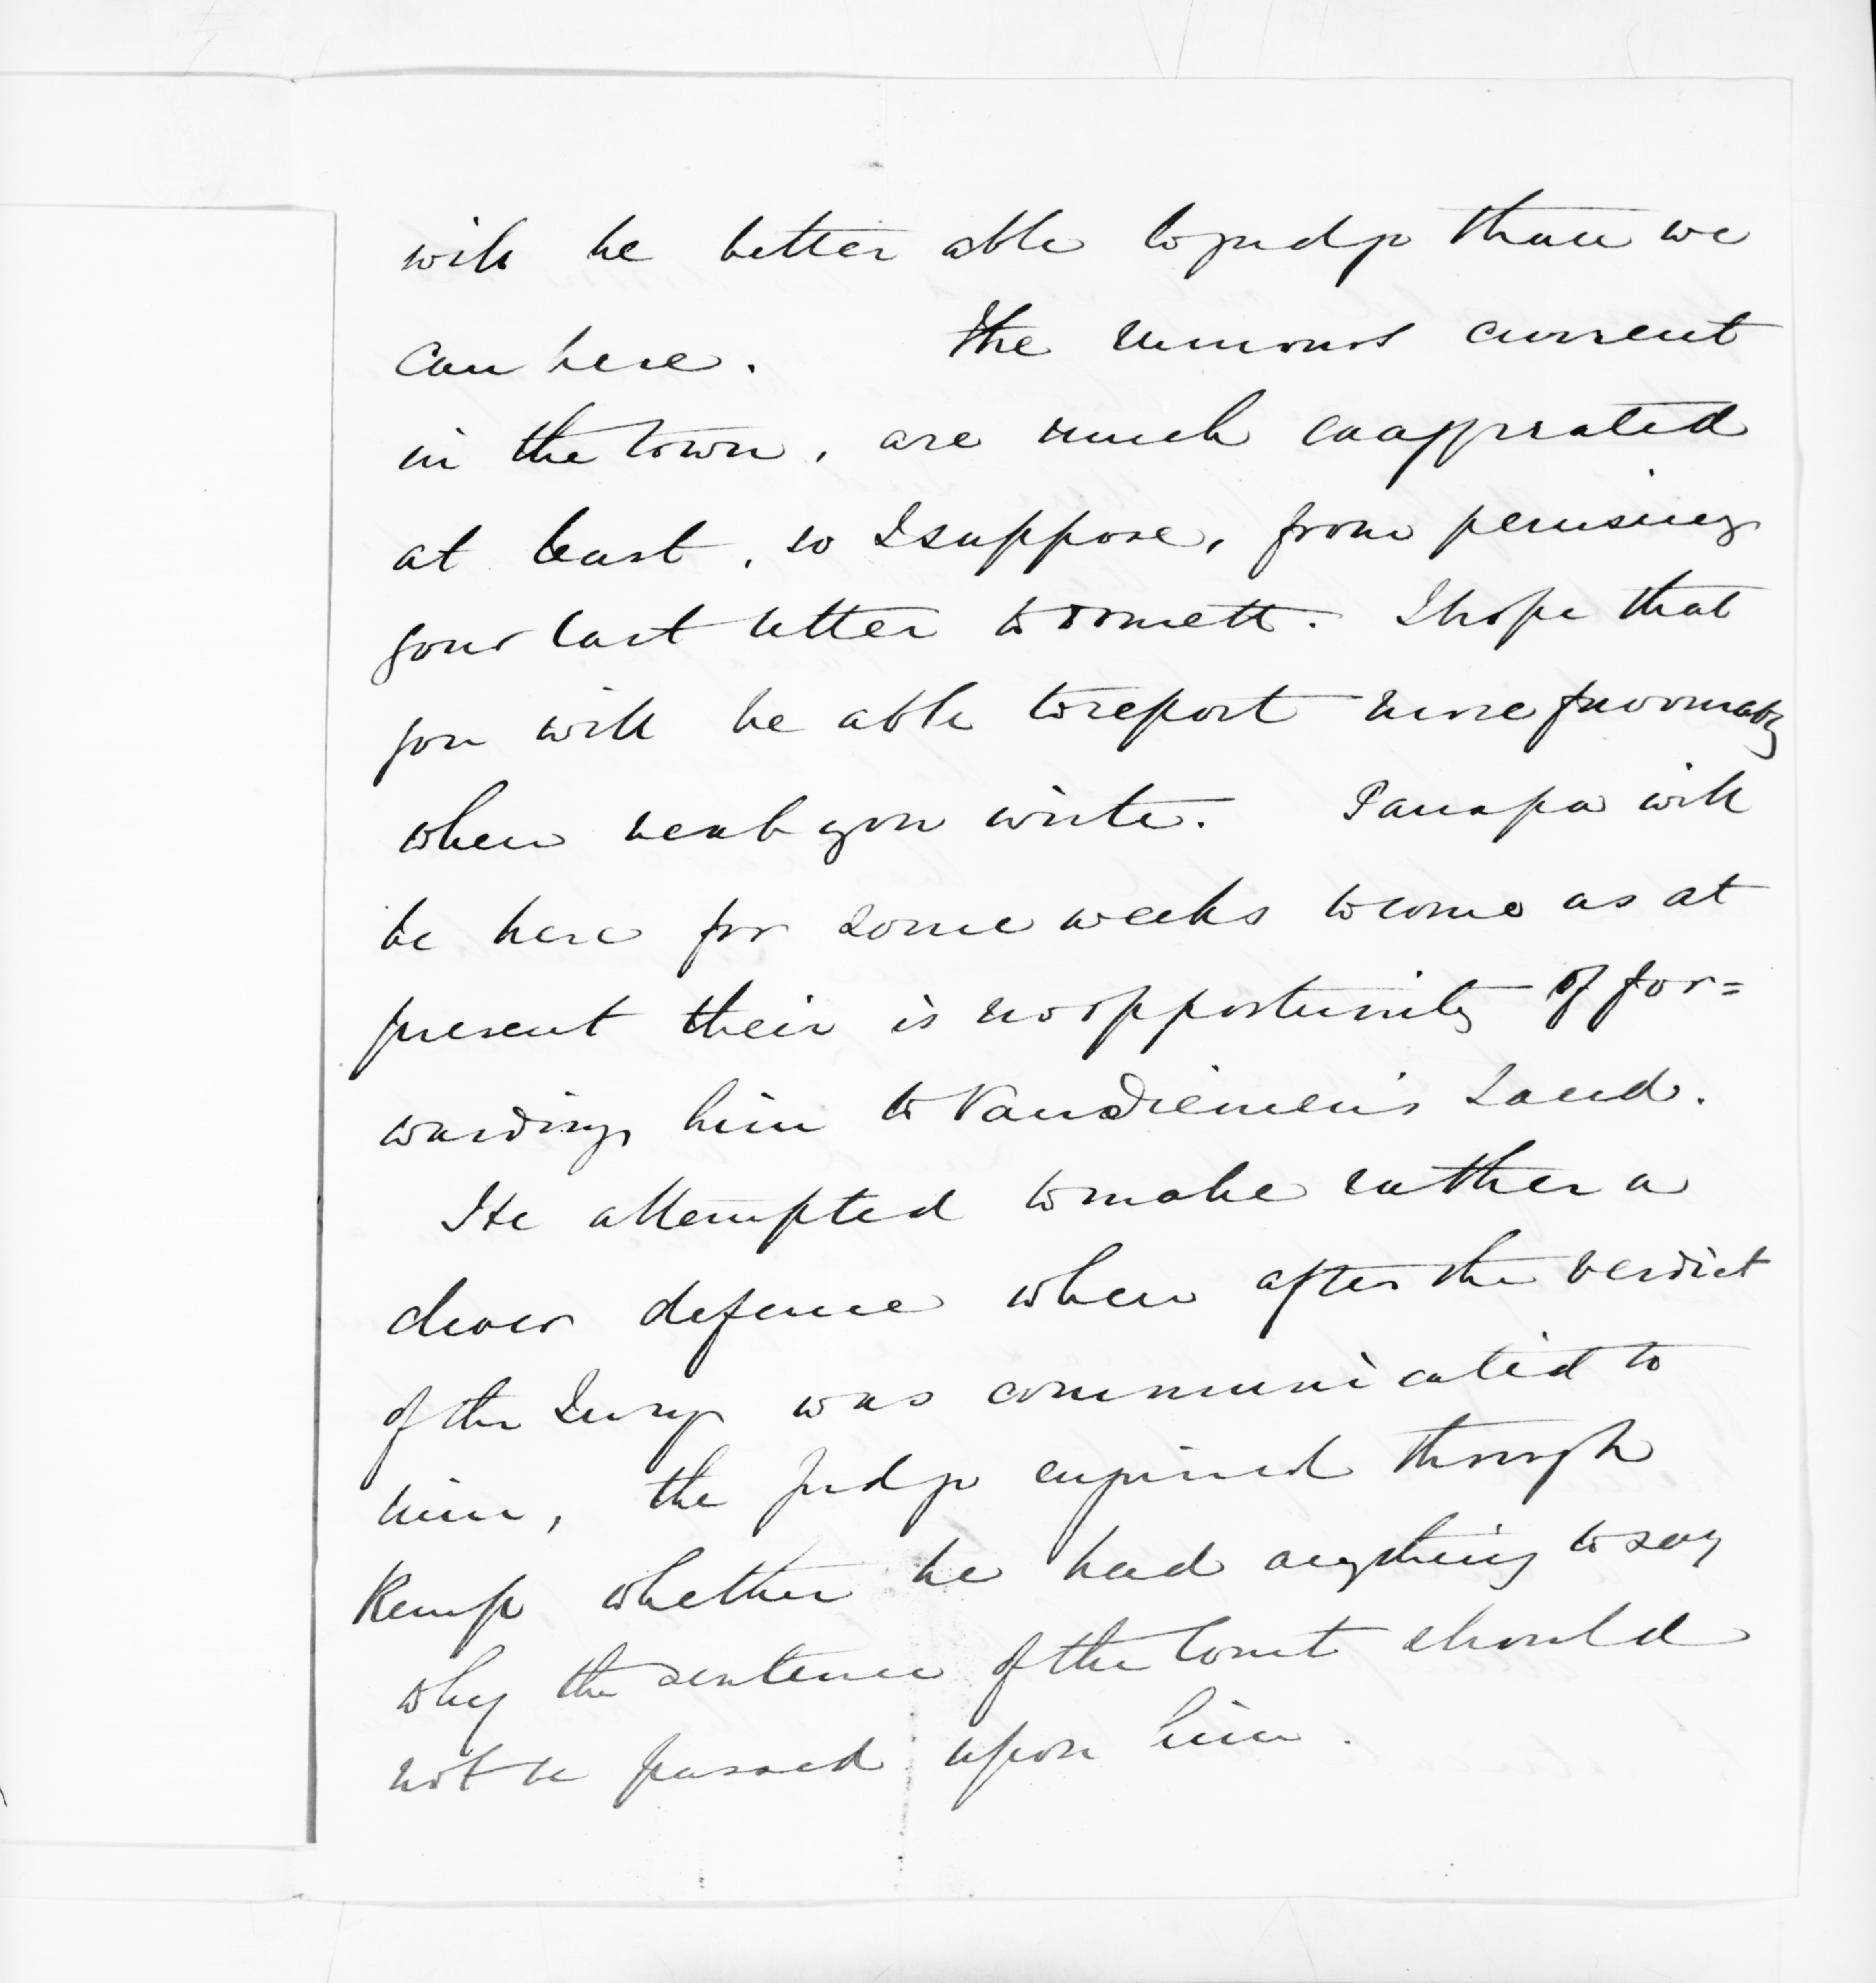 will be better able to judge than we
can here. The rumours current
in the town, are much exaggerated
at least, so I suppose, from perusing
your last letter to me. I hope that
you will be able to report more favourably
when next you write. Panapa will
be here for some weeks to come as at
present their is no opportunity of for=
warding him to Van Diemen's Land.
He attempted to make rather a
clever defence when after the verdict
of the Jury was communicated to
him, the Judge enquired through
Kemp whether he had anything to say
why the sentence of the Court should
not be passed upon him.